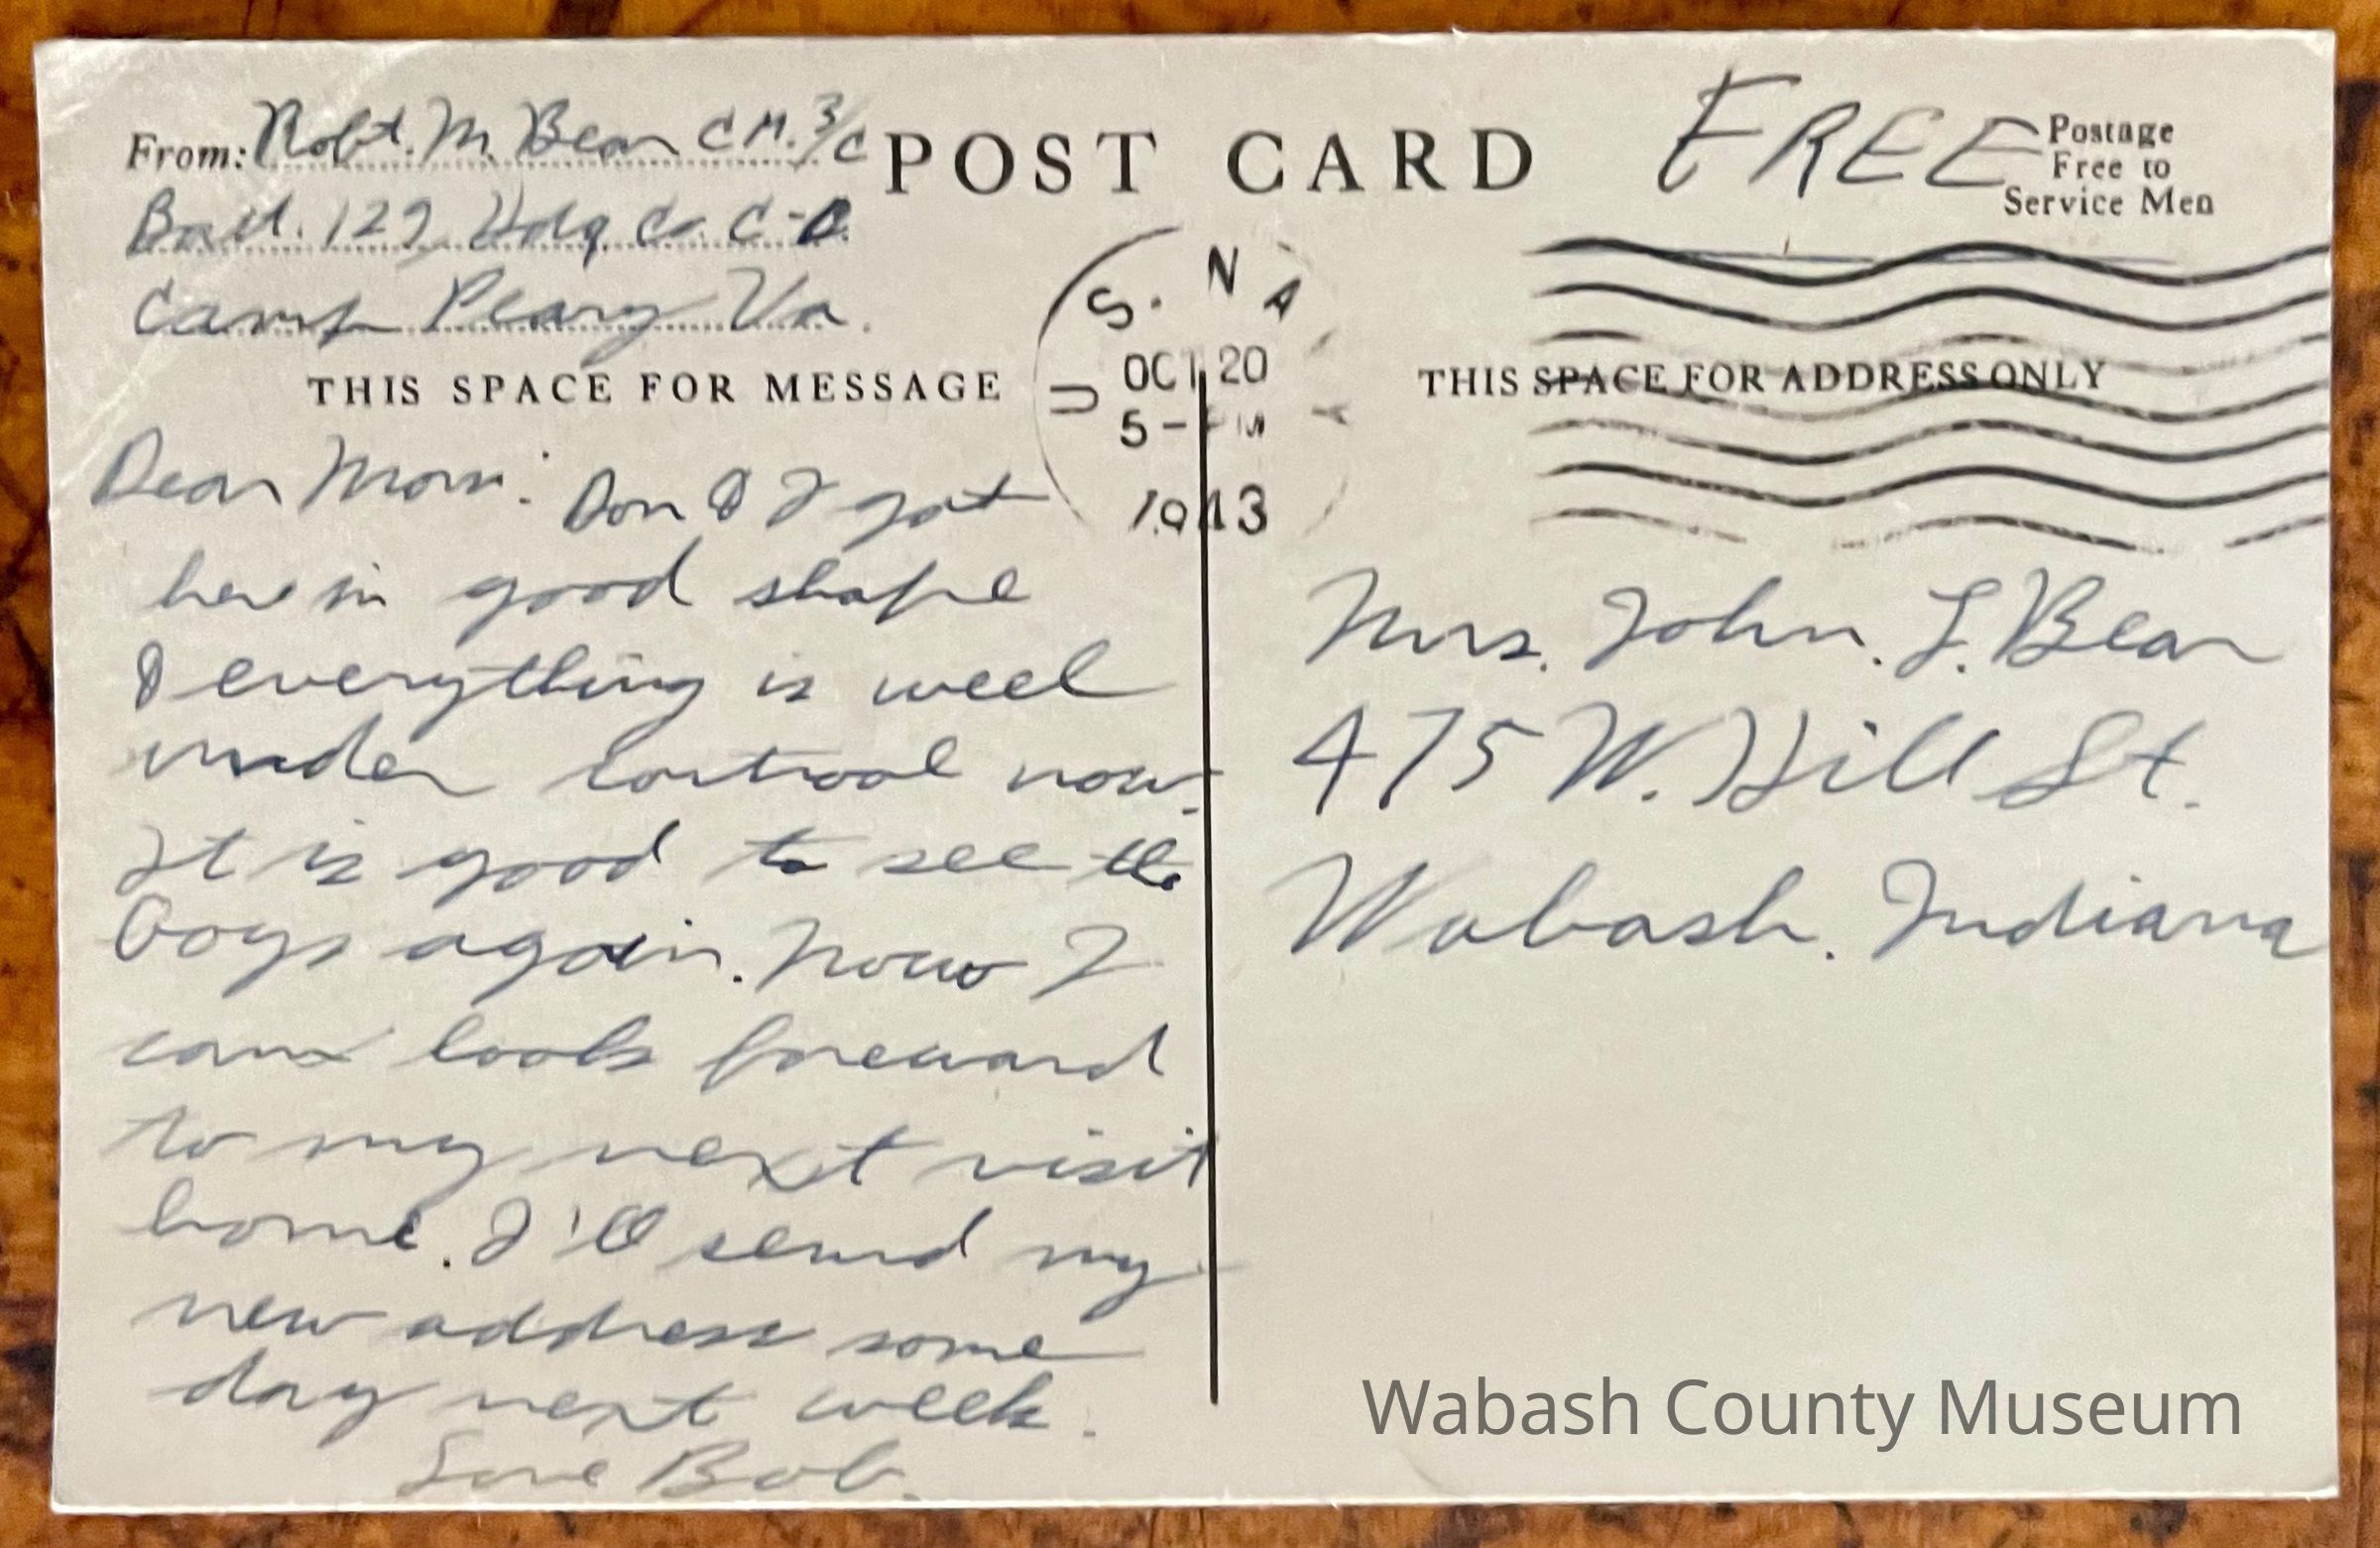 From: Robt. M. Bear C M. 3/c
Batt. 129 Hdq. Co. C-
Camp Peary Va.
POST CARD
FREE
Postage
Free to
Service Men
U S. NA Y
OCT 20
5-PM
1943
THIS SPACE FOR MESSAGE
THIS SPACE FOR ADDRESS ONLY
Dear Mom: Don & I got
here in good shape
& everything is weel
under controol now.
It is good to see the
boys again. Now I
can look foreward
to my next visit
home. I'll send my
new address some
day next week.
Love Bob.
Mrs. John. L. Bear
475 W. Hill St.
Wabash. Indiana
Wabash County Museum